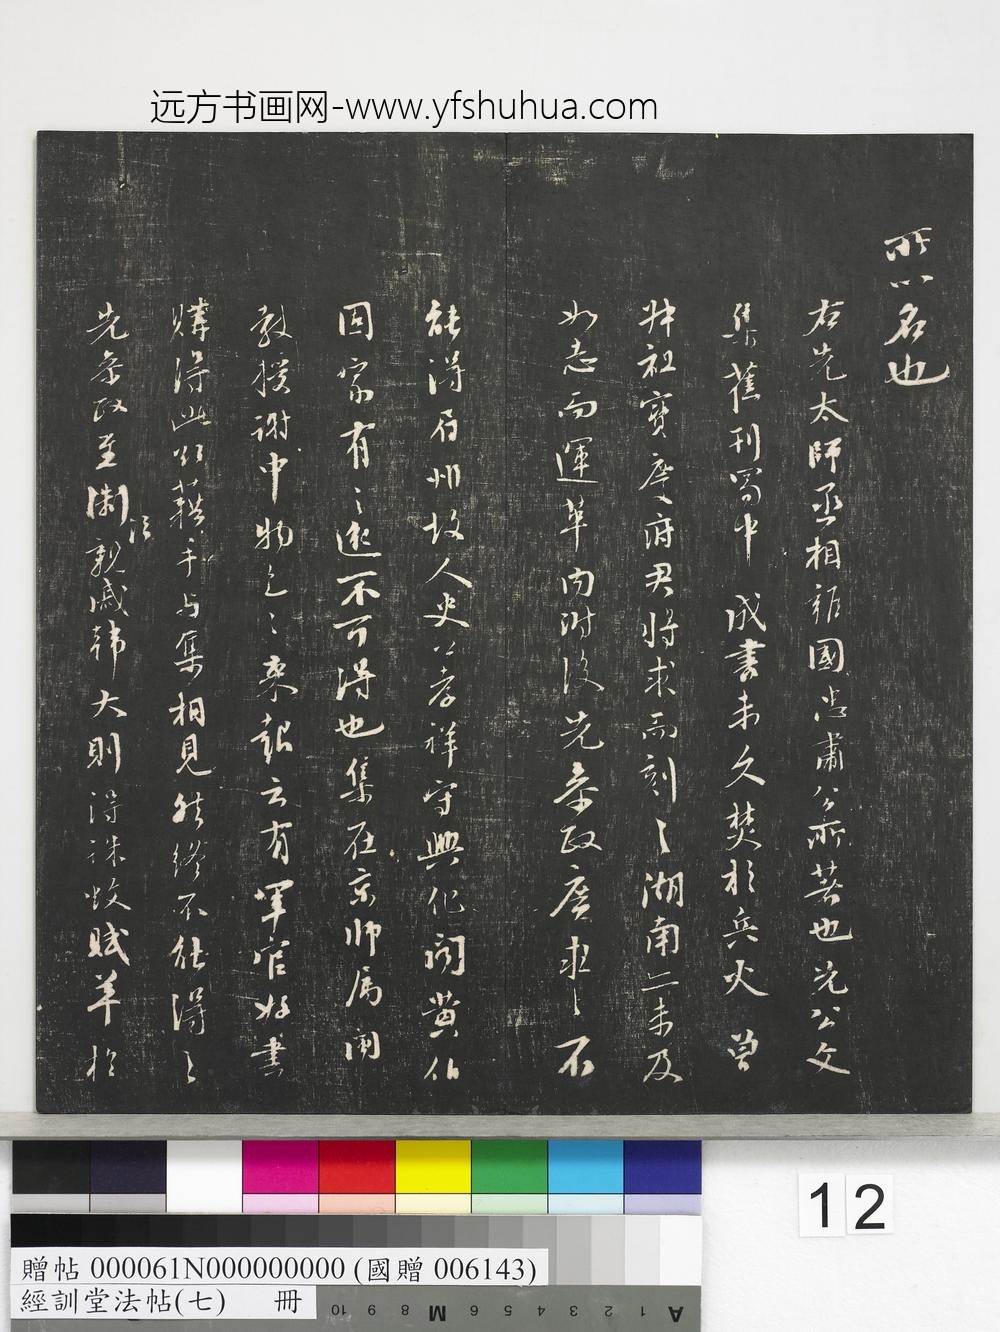 远方书画网-www.yfshuhua.com
所以名也
右先太師丞相雍國忠肅公所著也先公文
集舊刊蜀中 成書未久焚於兵火 曾
叔祖寶慶府尹將求而刻之湖南亡未及
如志而運革內附後先參政廣求之不
能得 州故人史公孝祥守興化聞黃仙
因家有之遂不可得也集在京師屬閩
教授謝中物色之來報云有軍官好書
購得此 藉手與集相見然終不能得之
先參政至 親戚韓大則得誅蚊賦草於
浙
12
贈帖 000061N000000000 (國贈 006143)
經訓堂法帖(七) 冊
10 9 8 M 6 5 4 3 2 1 A